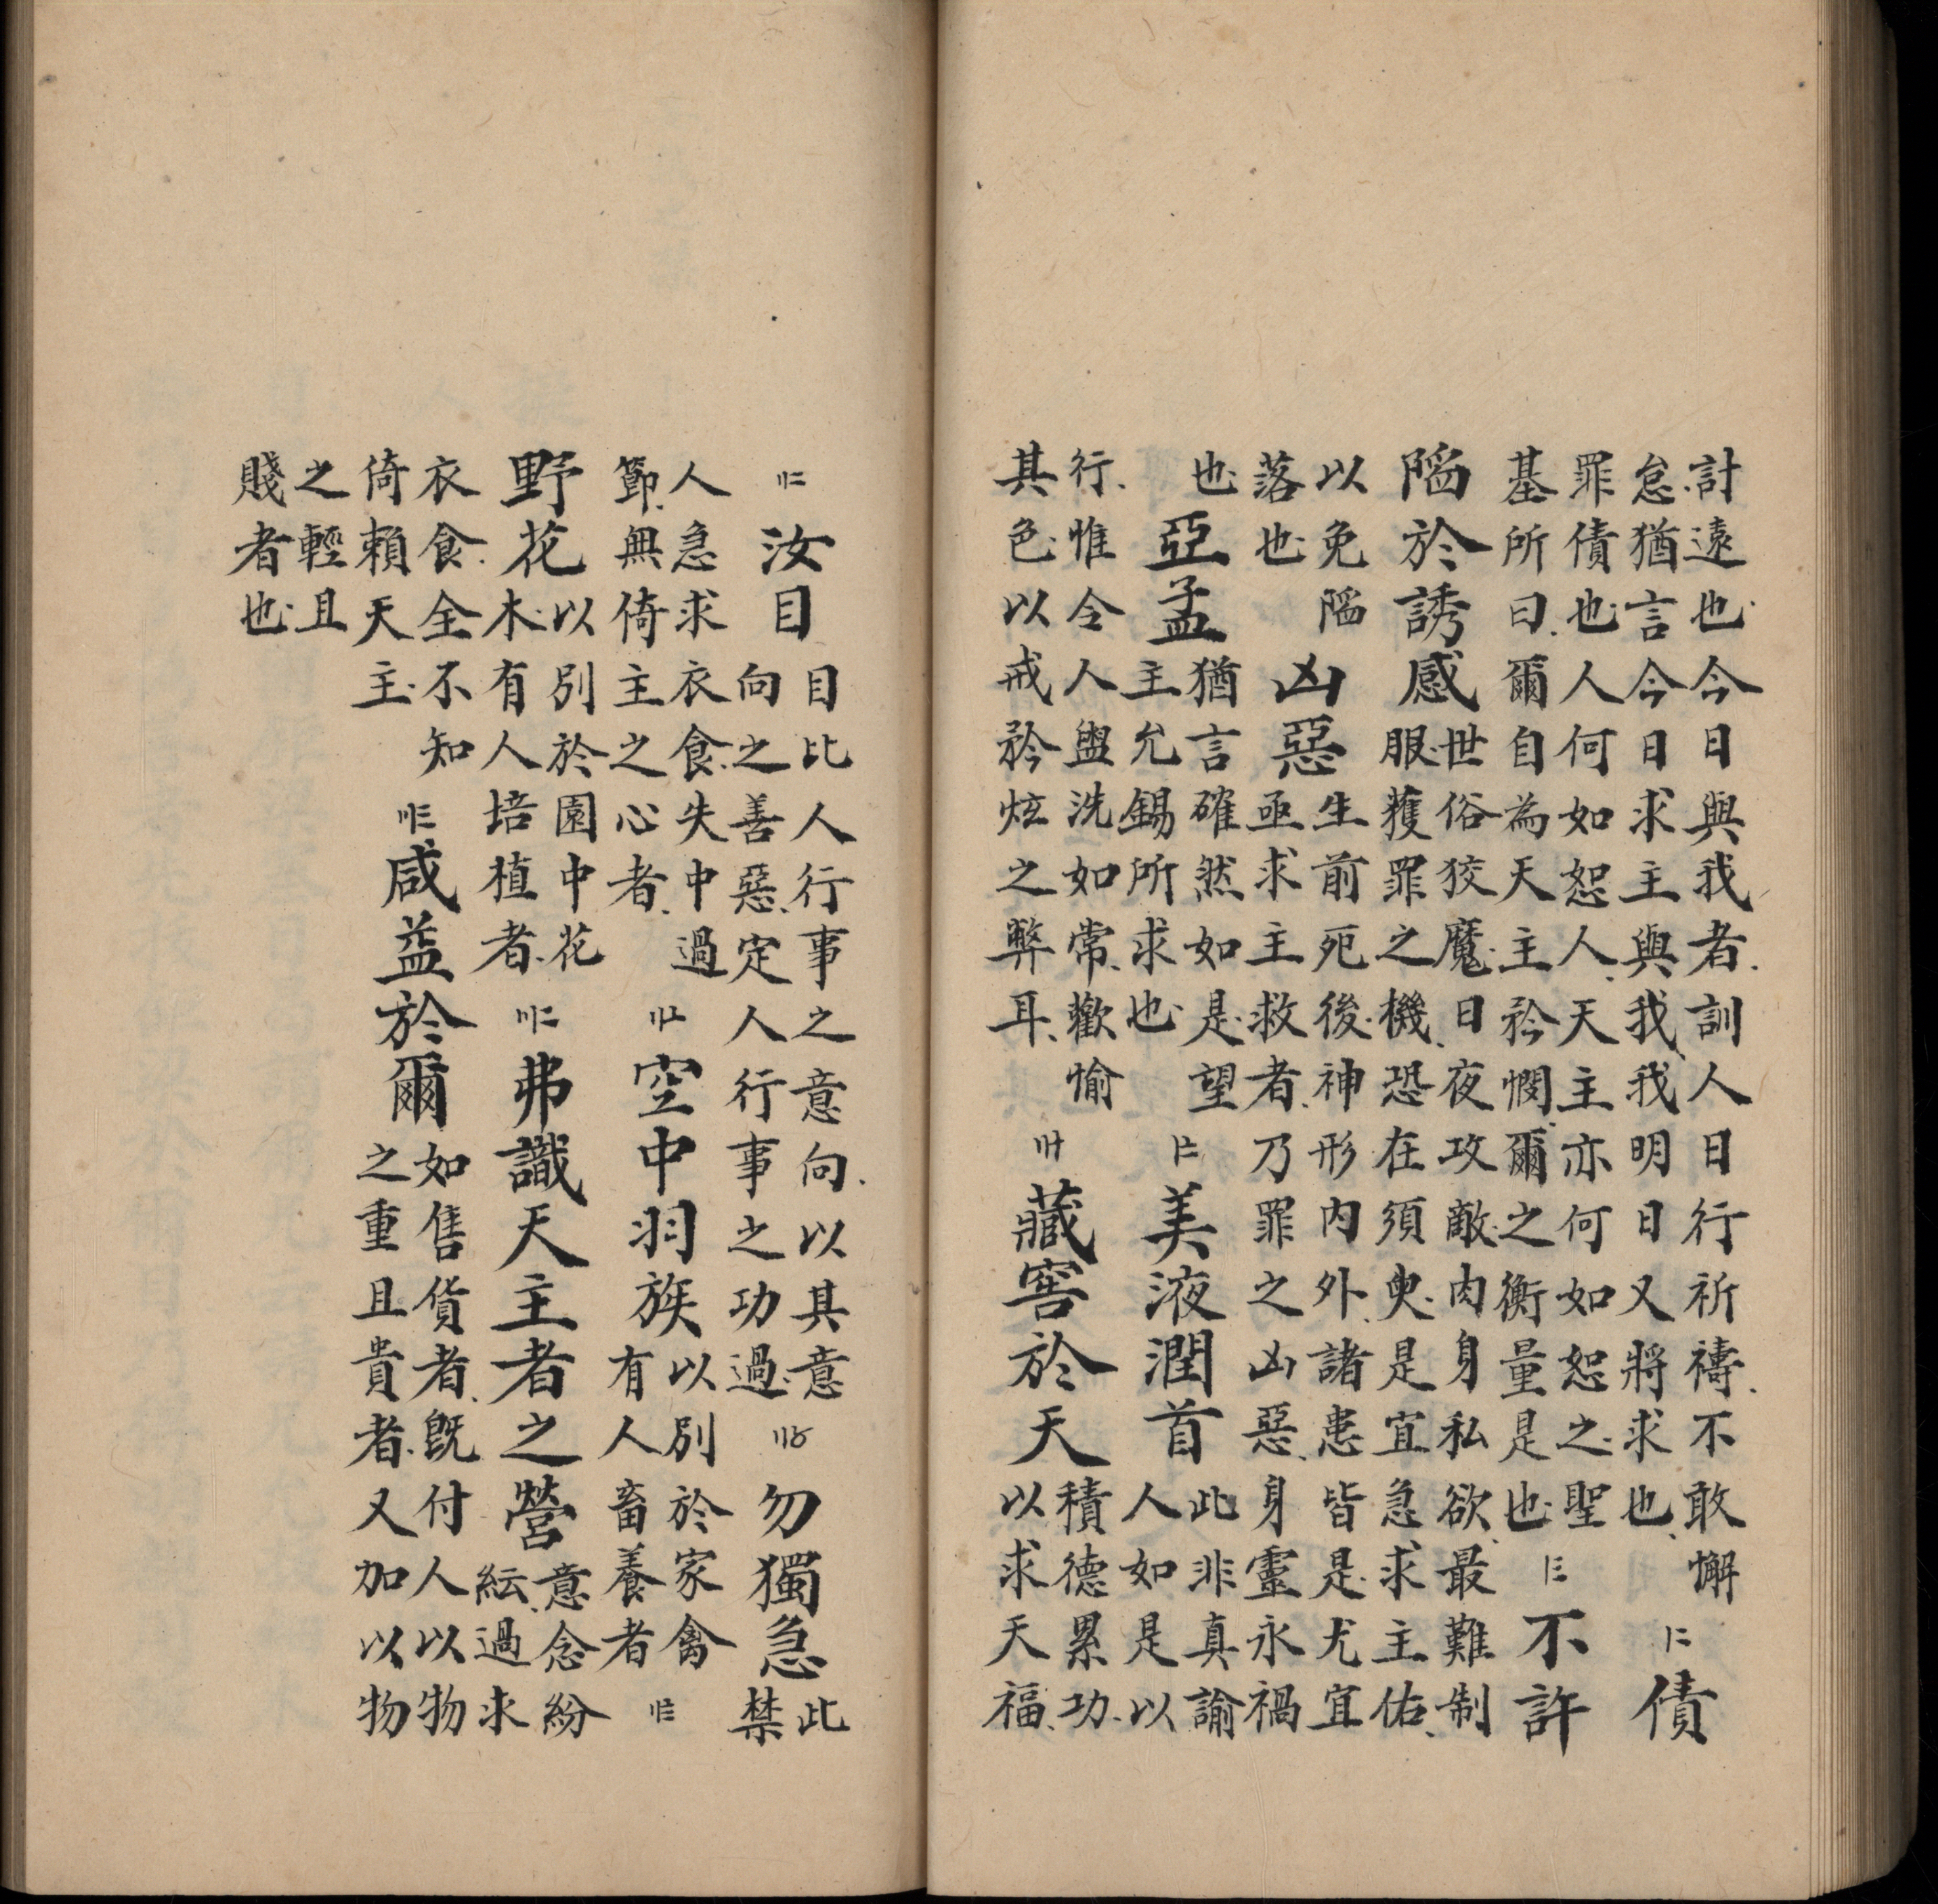 計遠也今日與我者訓人日行祈禱不敢懈
怠猶言今今日求主與我我明日又將求也
〡二債
罪債也人何如恕人天主亦何如恕之聖
基所曰爾自為天主矜憫爾之衡量是也
〡三不許
陷於誘感
世俗狡魔日夜攻敵肉身私欲最難制
服獲罪之機恐在須臾是宜急求主佑
以免陷
落也
凶惡
生前死後神形内外諸患皆是尤宜
亟求主救者乃罪之凶惡身靈永禍
也
亞孟
猶言確然如是望
主允錫所求也
〡〧美液潤首
此非真諭
人如是以
行惟令人盥洗如常歡愉
其色以戒矜炫之弊耳
〢十藏窖於天
積德累功
以求天福
〢二汝目
目比人行事之意向以其意
向之善惡定人行事之功過
〢〥勿獨急
此
禁
人急求衣食失中過
節無倚主之心者
〢〦空中羽族
以別於家禽
有人畜養者
〢〨
野花
以別於園中花
木有人培植者
〣二弗識天主者之營
意念紛
紜過求
衣食全不知
倚賴天主
〣三咸益於爾
如售貨者既付人以物
之重且貴者又加以物
之輕且
賤者也